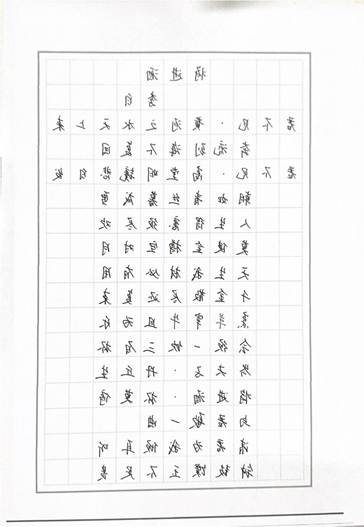 将进酒
李白
君不见·黄河之水天上来
奔流到海不复回
君不见·高堂明镜悲白发
朝如青丝暮成雪
人生得意须尽欢
莫使金樽空对月
天生我材必有用
千金散尽还复来
烹羊宰牛且为乐
会须一饮三百杯
岑夫子·丹丘生
将进酒·杯莫停
与君歌一曲
请君为我倾耳听
钟鼓馔玉不足贵